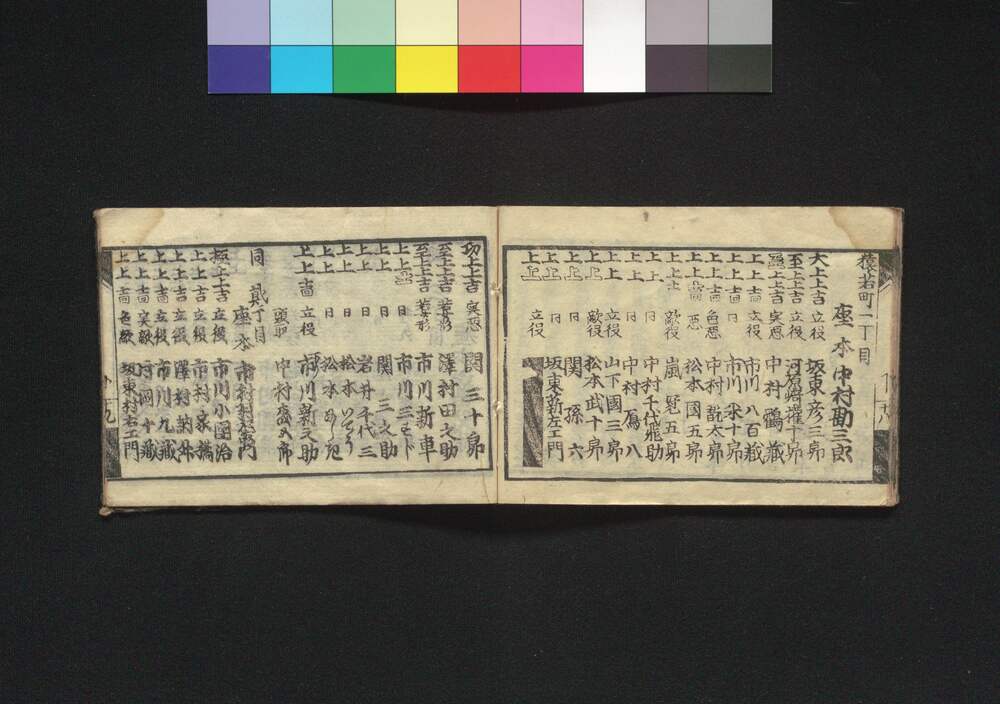 猿若町一丁目
座本 中村勘三郎
大上上吉 立役 坂東彦三郎
至上上吉 立役 河原崎権十郎
上上吉 実悪 中村鶴蔵
上上吉 立役 市川八百蔵
上上吉 日 市川米十郎
上上吉 色悪 中村翫太郎
上上吉 悪 松本国五郎
上上 敵役 嵐冠五郎
上上 日 中村千代飛助
上上 日 中村鴈八
上上 立役 山下國三郎
上上 敵役 松本武十郎
上上 日 関孫六
上上 立役 坂東薪左エ門
功上上吉 実悪 関三十郎
至上上吉 若女形 澤村田之助
至上上吉 若女形 市川新車
上上吉 日 市川三
上上 日 関三之助
上上 日 岩井千代三
上上 日 松本
上上 日 松本
上上吉 立役 市川新之助
頭取 中村
同 貳丁目
座本 市村
極上上吉 立役 市川小團治
上上吉 立役 市村家橘
上上吉 立役 澤村訥舛
上上吉 立役 市川九蔵
上上吉 実敵 河岡十蔵
上上吉 色敵 坂東村右エ門